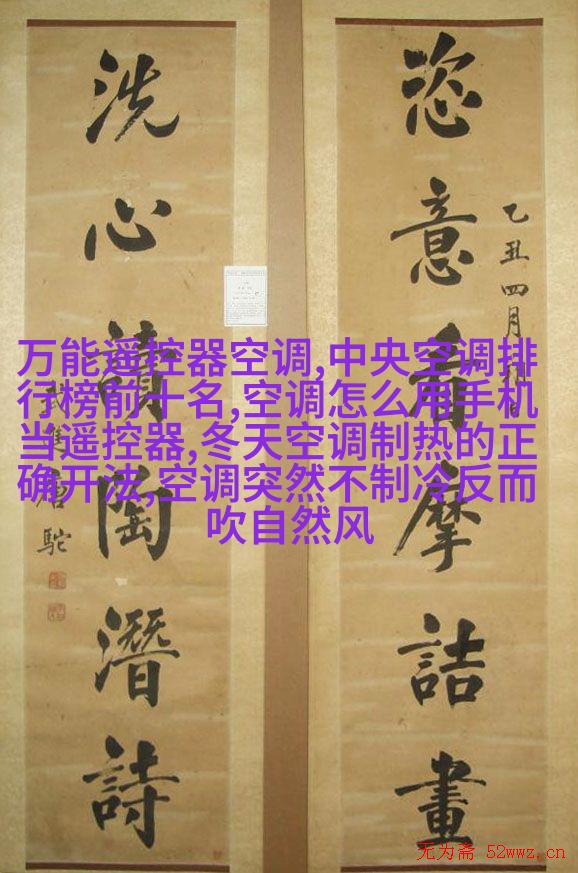 恣意看摩詰畫
乙丑四月
洗心陶潛詩
武唐駝
万能遥控器空调,中央空调排
行榜前十名,空调怎么用手机
当遥控器,冬天空调制热的正
确开法,空调突然不制冷反而
吹自然风
无为斋 52wwz.cn